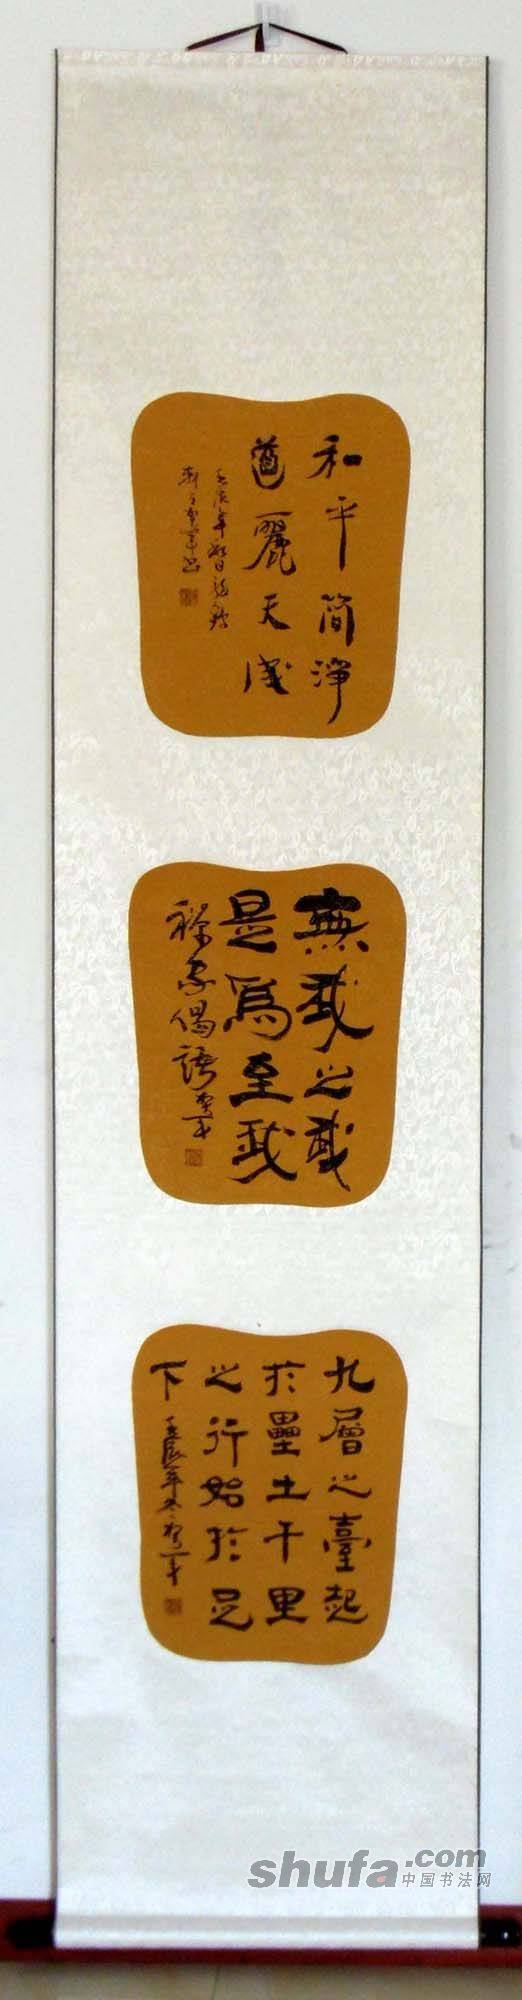 和平简淨
遒麗天成
壬辰年
無我之我
是爲至我
禅家偈語
九層之臺起
於壘土千里
之行始於足
下
壬辰年冬
shufa.com
中国书法网